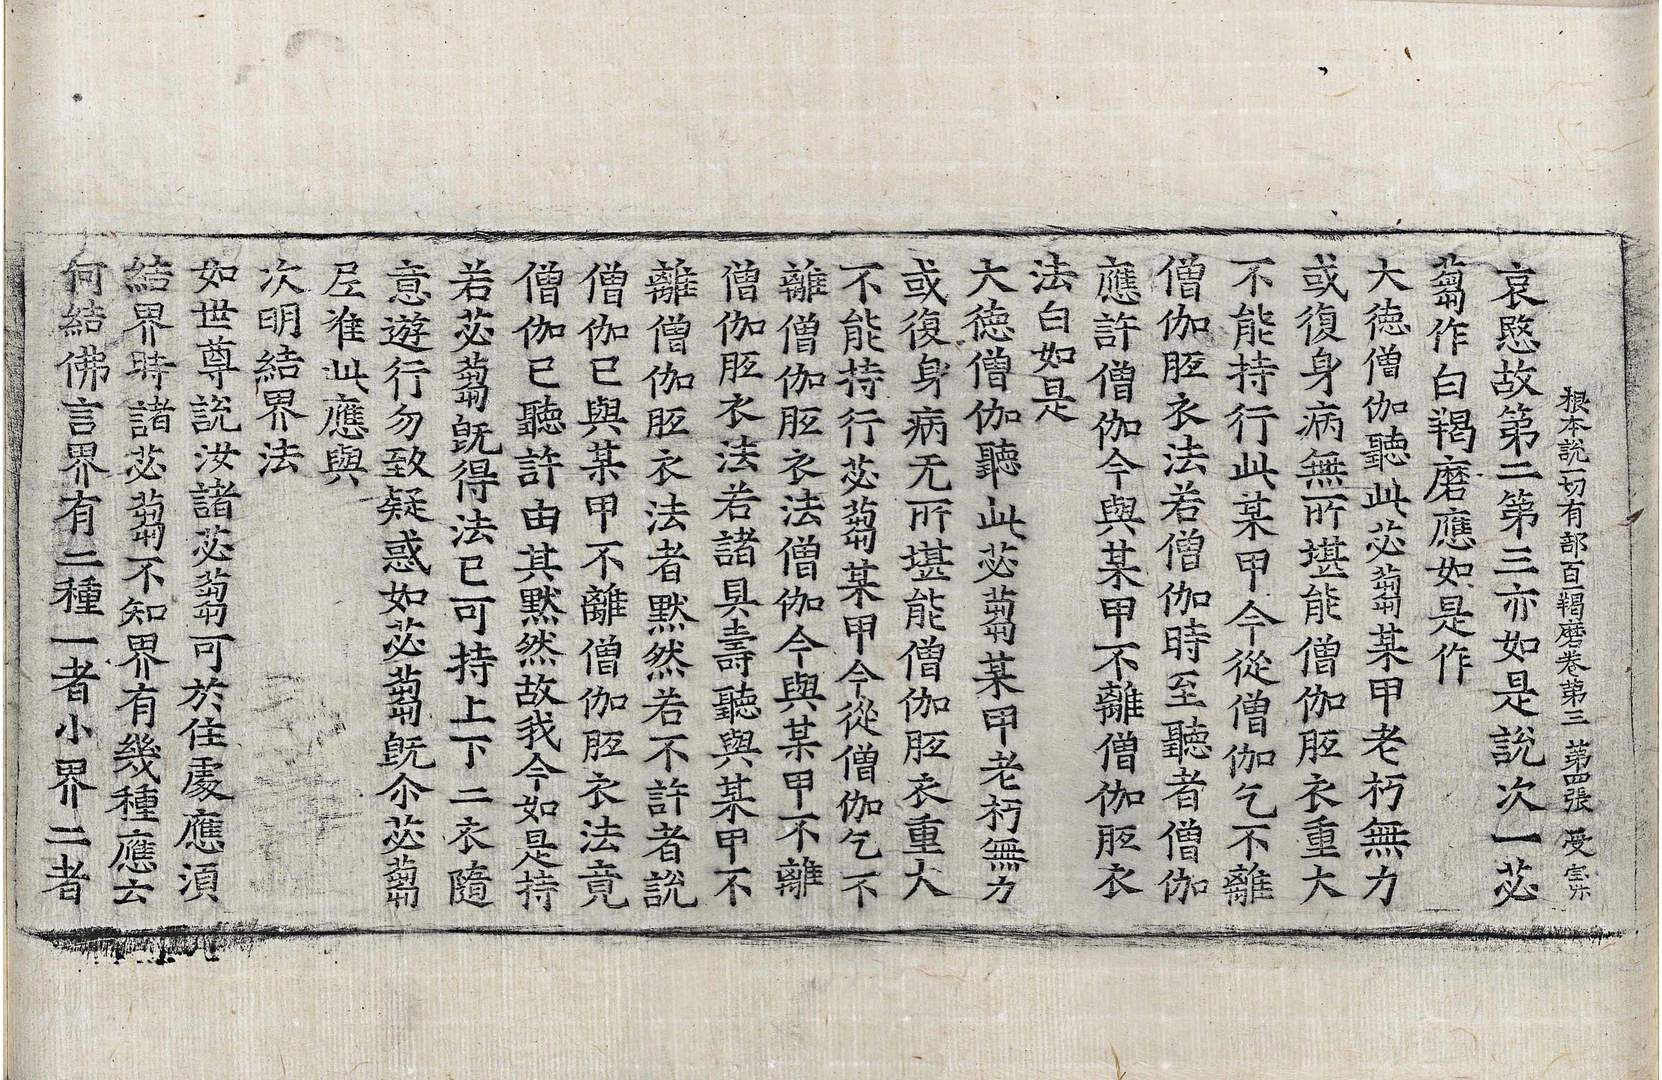 根本說一切有部百羯磨卷第三 第四張 受
哀愍故第二第三亦如是說次一苾
蒭作白羯磨應如是作
大徳僧伽聽此苾蒭某甲老朽無力
或復身病無所堪能僧伽胝衣重大
不能持行此某甲今從僧伽乞不離
僧伽胝衣法若僧伽時至聽者僧伽
應許僧伽今與某甲不離僧伽胝衣
法白如是
大徳僧伽聽此苾蒭某甲老朽無力
或復身病无所堪能僧伽胝衣重大
不能持行苾蒭某甲今從僧伽乞不
離僧伽胝衣法僧伽今與某甲不離
僧伽胝衣法若諸具壽聽與某甲不
離僧伽胝衣法者默然若不許者說
僧伽已與某甲不離僧伽胝衣法竟
僧伽已聽許由其默然故我今如是持
若苾蒭旣得法已可持上下二衣隨
意遊行勿致疑惑如苾蒭旣尒苾蒭
尼准此應與
次明結界法
如世尊說汝諸苾蒭可於住處應須
結界時諸苾蒭不知界有幾種應云
何結佛言界有二種一者小界二者